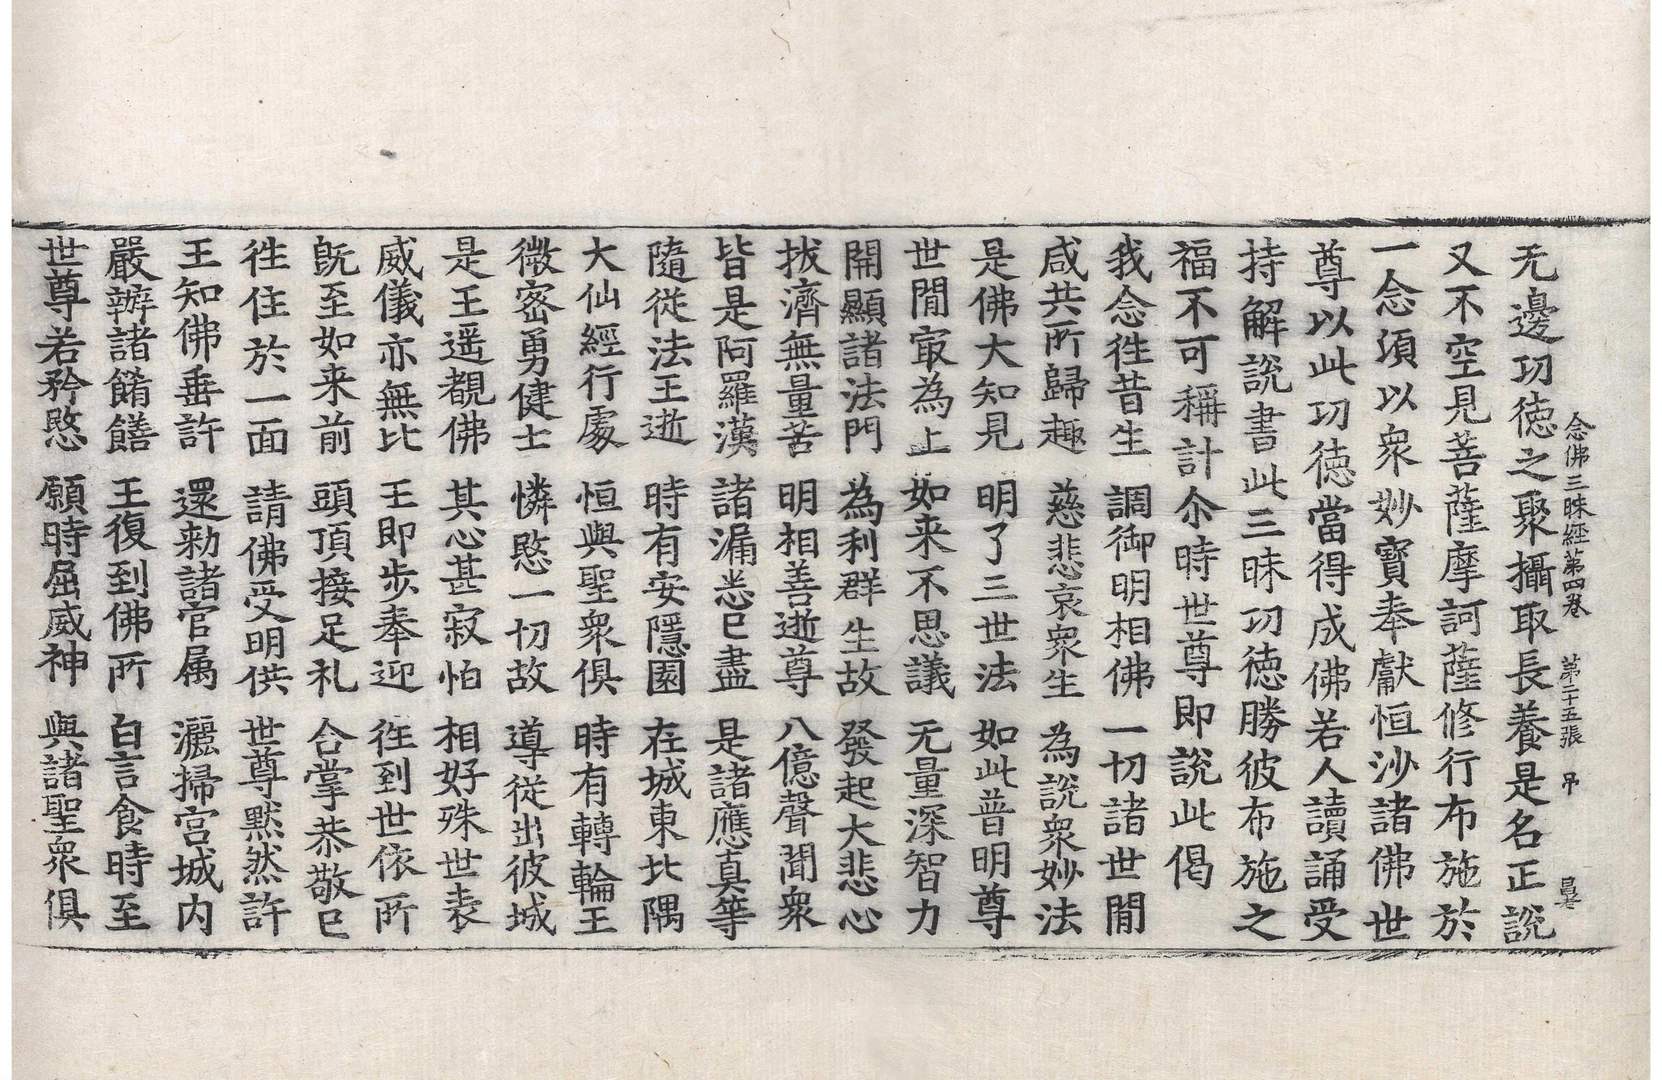 念佛三昧經第四卷　第二十五張　弔
无邊功徳之聚攝取長養是名正說
又不空見菩薩摩訶薩修行布施於
一念湏以衆妙寶奉獻恒沙諸佛世
尊以此功徳當得成佛若人讀誦受
持解說書此三昧功徳勝彼布施之
福不可稱計尒時世尊即說此偈
我念徃昔生　調御明相佛　一切諸世閒
咸共所歸趣　慈悲哀衆生　為說衆妙法
是佛大知見　明了三世法　如此普明尊
世閒㝡為上　如来不思議　无量深智力
開顯諸法門　為利群生故　發起大悲心
拔濟無量苦　明相善逝尊　八億聲聞衆
皆是阿羅漢　諸漏悉已盡　是諸應真等
隨從法王逝　時有安隱園　在城東北隅
大仙經行處　恒與聖衆俱　時有轉輪王
微密勇健士　憐愍一切故　導從出彼城
是王遥覩佛　其心甚寂怕　相好殊世表
威儀亦無比　王即步奉迎　徃到世依所
旣至如来前　頭頂接足礼　合掌恭敬已
徃住於一面　請佛受明供　世尊黙然許
王知佛垂許　還勑諸官属　灑掃宮城内
嚴辦諸餚饍　王復到佛所　白言食時至
世尊若矜愍　願時屈威神　與諸聖衆俱